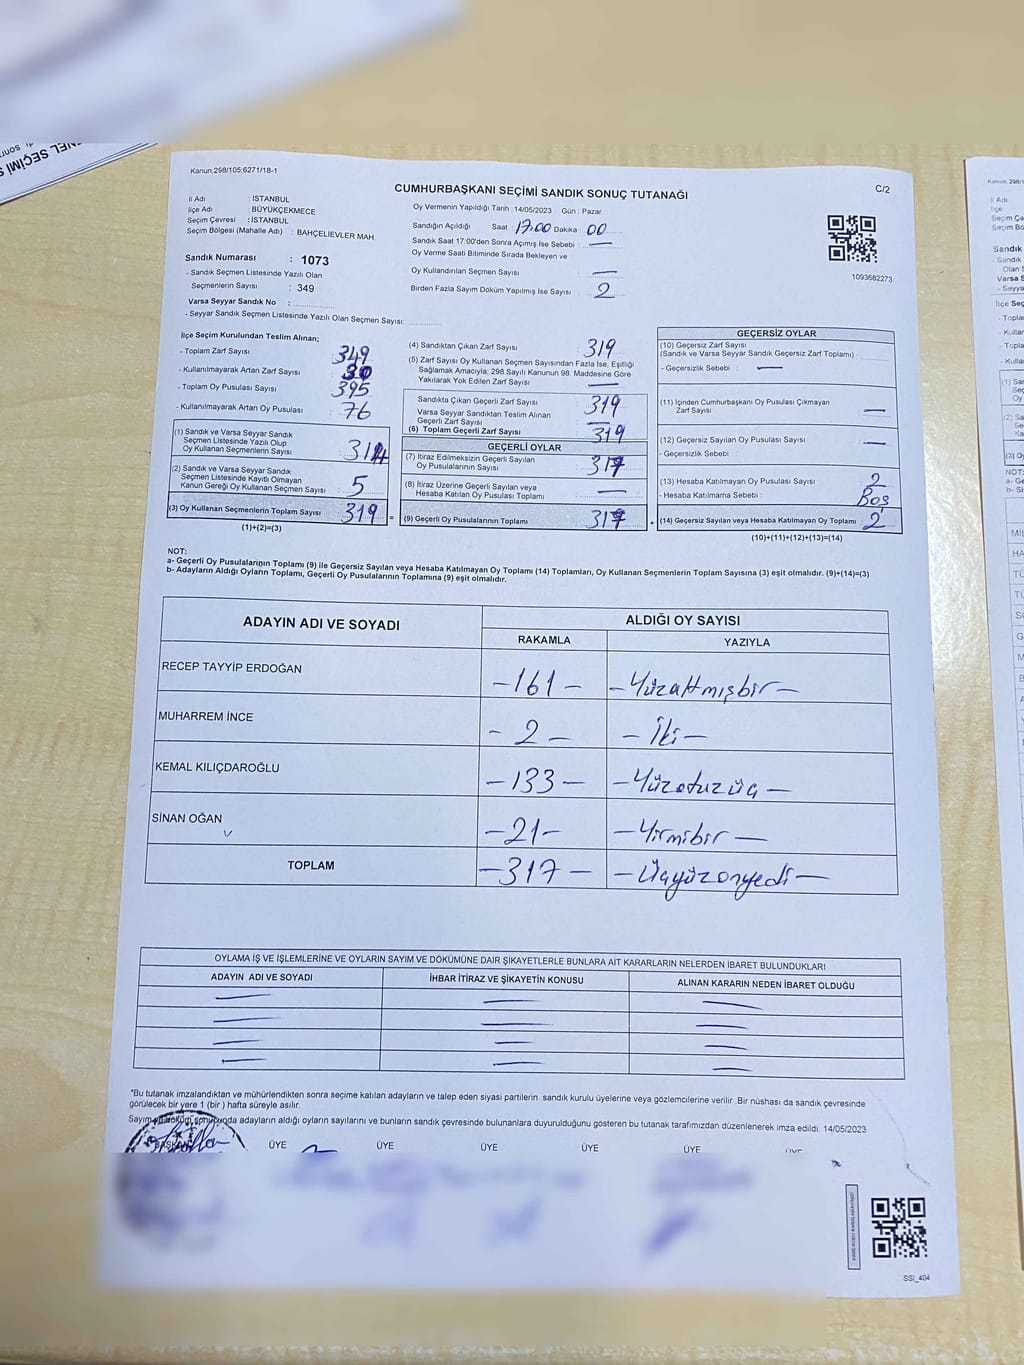 NEL SEÇİMİ S
Kanun:298/105;6271/18-1
CUMHURBAŞKANI SEÇİMİ SANDIK SONUÇ TUTANAĞI
C/2
İl Adı : İSTANBUL
İlçe Adı : BÜYÜKÇEKMECE
Seçim Çevresi : İSTANBUL
Seçim Bölgesi (Mahalle Adı) : BAHÇELİEVLER MAH.
Sandık Numarası : 1073
- Sandık Seçmen Listesinde Yazılı Olan
Seçmenlerin Sayısı : 349
Varsa Seyyar Sandık No :
- Seyyar Sandık Seçmen Listesinde Yazılı Olan Seçmen Sayısı:
Oy Vermenin Yapıldığı Tarih : 14/05/2023 Gün : Pazar
Sandığın Açıldığı Saat : 17:00 Dakika : 00
Sandık Saat 17:00'den Sonra Açılmış İse Sebebi : —
Oy Verme Saati Bitiminde Sırada Bekleyen ve
Oy Kullandırılan Seçmen Sayısı —
Birden Fazla Sayım Döküm Yapılmış İse Sayısı : 2
1093682273
İlçe Seçim Kurulundan Teslim Alınan;
- Toplam Zarf Sayısı : 349
- Kullanılmayarak Artan Zarf Sayısı : 30
- Toplam Oy Pusulası Sayısı : 395
- Kullanılmayarak Artan Oy Pusulası : 76
(1) Sandık ve Varsa Seyyar Sandık
Seçmen Listesinde Yazılı Olup
Oy Kullanan Seçmenlerin Sayısı : 314
(2) Sandık ve Varsa Seyyar Sandık
Seçmen Listesinde Kayıtlı Olmayan
Kanun Gereği Oy Kullanan Seçmen Sayısı : 5
(3) Oy Kullanan Seçmenlerin Toplam Sayısı : 319
(1)+(2)=(3)
(4) Sandıktan Çıkan Zarf Sayısı : 319
(5) Zarf Sayısı Oy Kullanan Seçmen Sayısından Fazla İse, Eşitliği
Sağlamak Amacıyla; 298 Sayılı Kanunun 98. Maddesine Göre
Yakılarak Yok Edilen Zarf Sayısı : —
Sandıkta Çıkan Geçerli Zarf Sayısı : 319
Varsa Seyyar Sandıktan Teslim Alınan
Geçerli Zarf Sayısı : —
(6) Toplam Geçerli Zarf Sayısı : 319
GEÇERLİ OYLAR
(7) İtiraz Edilmeksizin Geçerli Sayılan
Oy Pusulalarının Sayısı : 317
(8) İtiraz Üzerine Geçerli Sayılan veya
Hesaba Katılan Oy Pusulası Toplamı : —
= (9) Geçerli Oy Pusulalarının Toplamı : 317
GEÇERSİZ OYLAR
(10) Geçersiz Zarf Sayısı
(Sandık ve Varsa Seyyar Sandık Geçersiz Zarf Toplamı) :
- Geçersizlik Sebebi : —
(11) İçinden Cumhurbaşkanı Oy Pusulası Çıkmayan
Zarf Sayısı : —
(12) Geçersiz Sayılan Oy Pusulası Sayısı : —
- Geçersizlik Sebebi :
(13) Hesaba Katılmayan Oy Pusulası Sayısı : 2
- Hesaba Katılmama Sebebi : Boş
+ (14) Geçersiz Sayılan veya Hesaba Katılmayan Oy Toplamı : 2
(10)+(11)+(12)+(13)=(14)
NOT:
a- Geçerli Oy Pusulalarının Toplamı (9) ile Geçersiz Sayılan veya Hesaba Katılmayan Oy Toplamı (14) Toplamları, Oy Kullanan Seçmenlerin Toplam Sayısına (3) eşit olmalıdır. (9)+(14)=(3)
b- Adayların Aldığı Oyların Toplamı, Geçerli Oy Pusulalarının Toplamına (9) eşit olmalıdır.
ADAYIN ADI VE SOYADI ALDIĞI OY SAYISI
RAKAMLA YAZIYLA
RECEP TAYYİP ERDOĞAN -161- -Yüzaltmışbir-
MUHARREM İNCE -2- -İki-
KEMAL KILIÇDAROĞLU -133- -Yüzotuzüç-
SİNAN OĞAN -21- -Yirmibir-
TOPLAM -317- -Üçyüzonyedi-
OYLAMA İŞ VE İŞLEMLERİNE VE OYLARIN SAYIM VE DÖKÜMÜNE DAİR ŞİKAYETLERLE BUNLARA AİT KARARLARIN NELERDEN İBARET BULUNDUKLARI
ADAYIN ADI VE SOYADI İHBAR İTİRAZ VE ŞİKAYETİN KONUSU ALINAN KARARIN NEDEN İBARET OLDUĞU
*Bu tutanak imzalandıktan ve mühürlendikten sonra seçime katılan adayların ve talep eden siyasi partilerin sandık kurulu üyelerine veya gözlemcilerine verilir .Bir nüshası da sandık çevresinde
görülecek bir yere 1 (bir ) hafta süreyle asılır.
Sayım ve döküm sonucunda adayların aldığı oyların sayılarını ve bunların sandık çevresinde bulunanlara duyurulduğunu gösteren bu tutanak tarafımızdan düzenlenerek imza edildi. 14/05/2023
BAŞKAN ÜYE ÜYE ÜYE ÜYE ÜYE ÜYE
SSİ_404